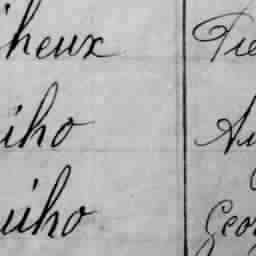 heux Pie
iho Au
uiho Geor